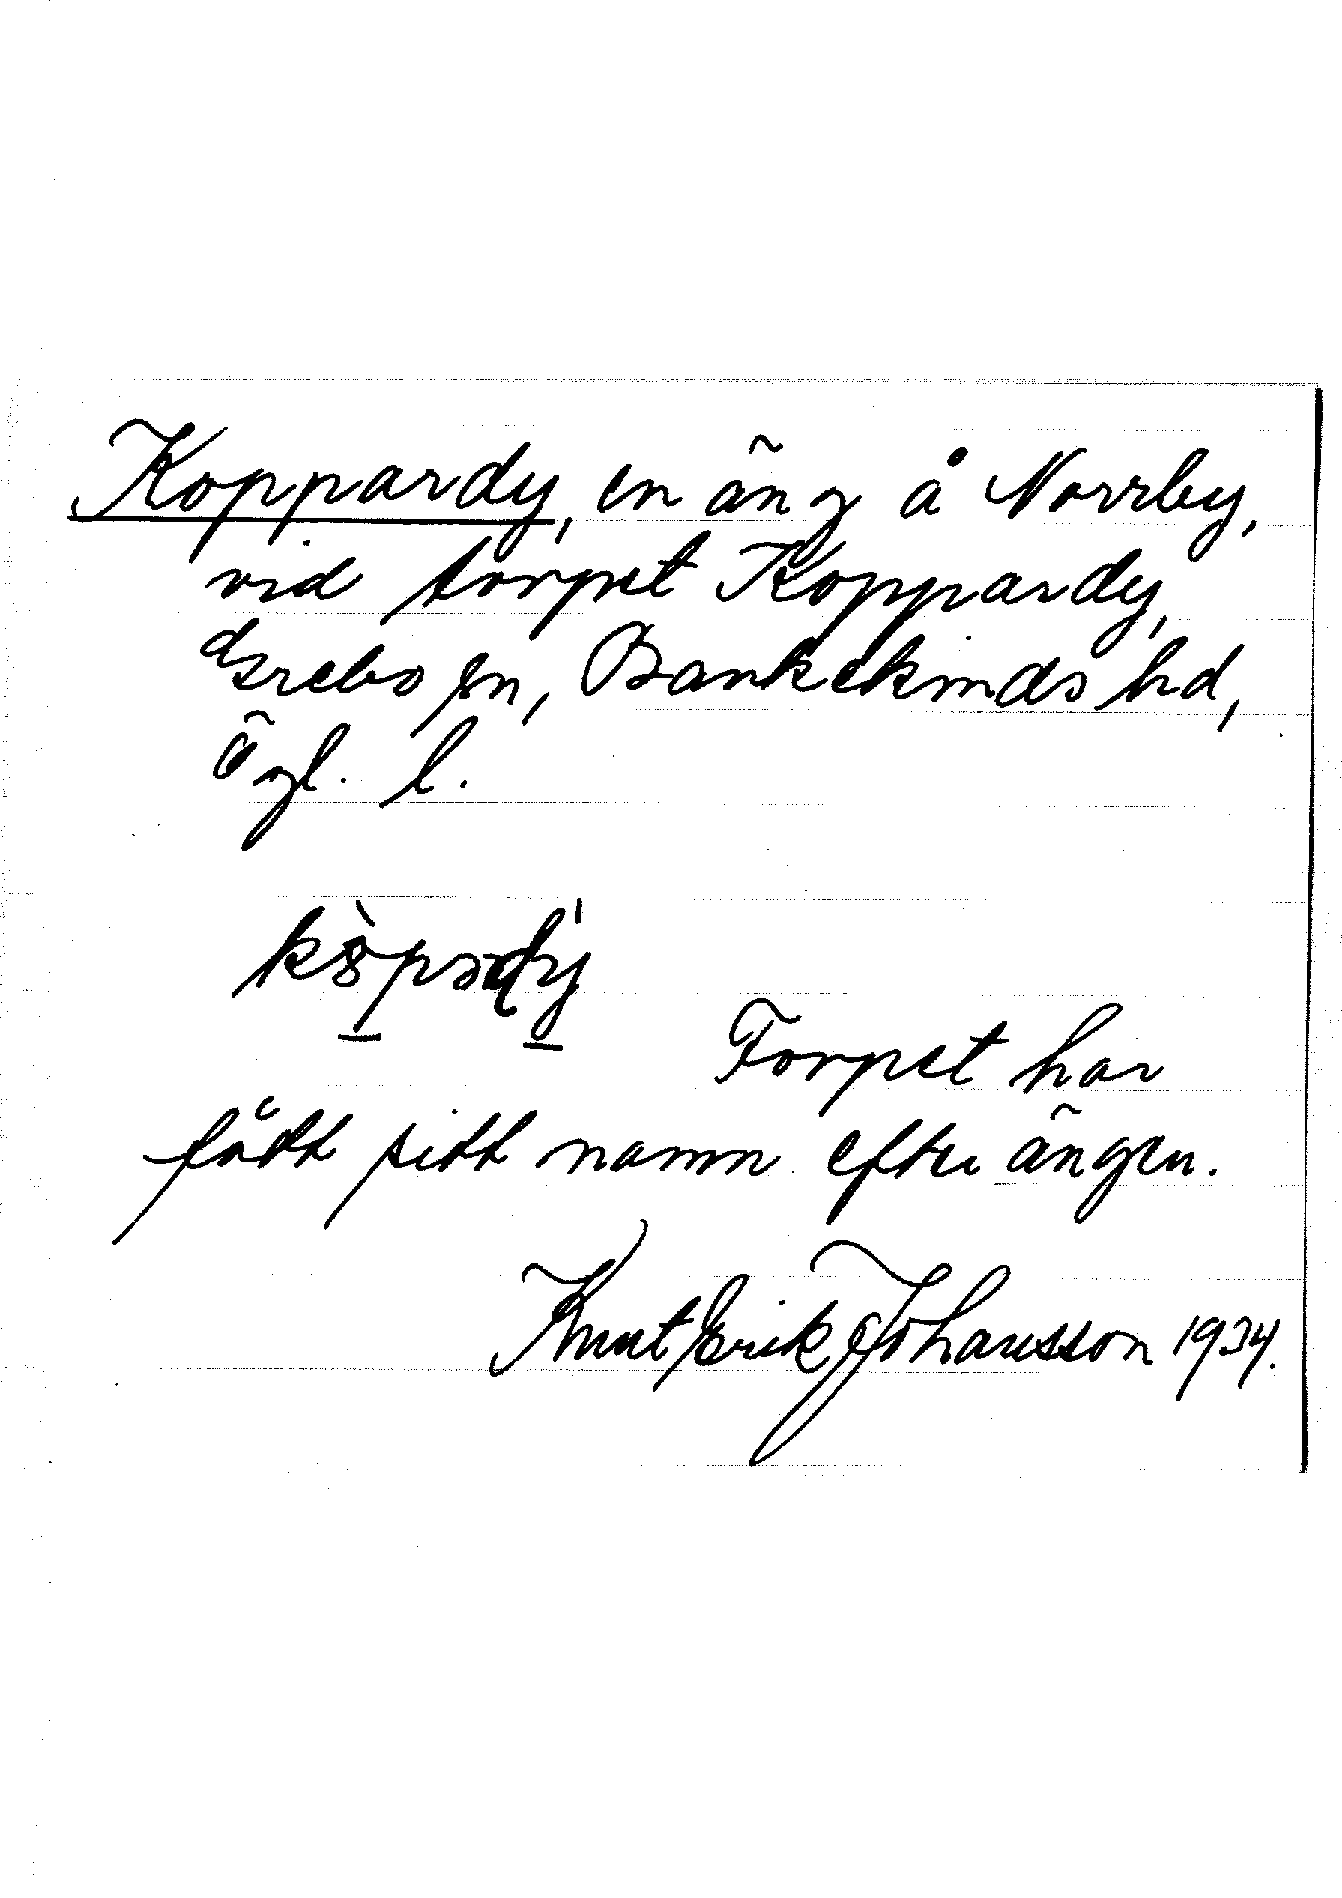 Koppardy, en äng å Norrby,
vid torpet Koppardy,
Grebo sn, Bankekinds hd,
Ögl. l.
Torpet har
fått sitt namn efter ängen.
Knut Erik Johansson 1934.